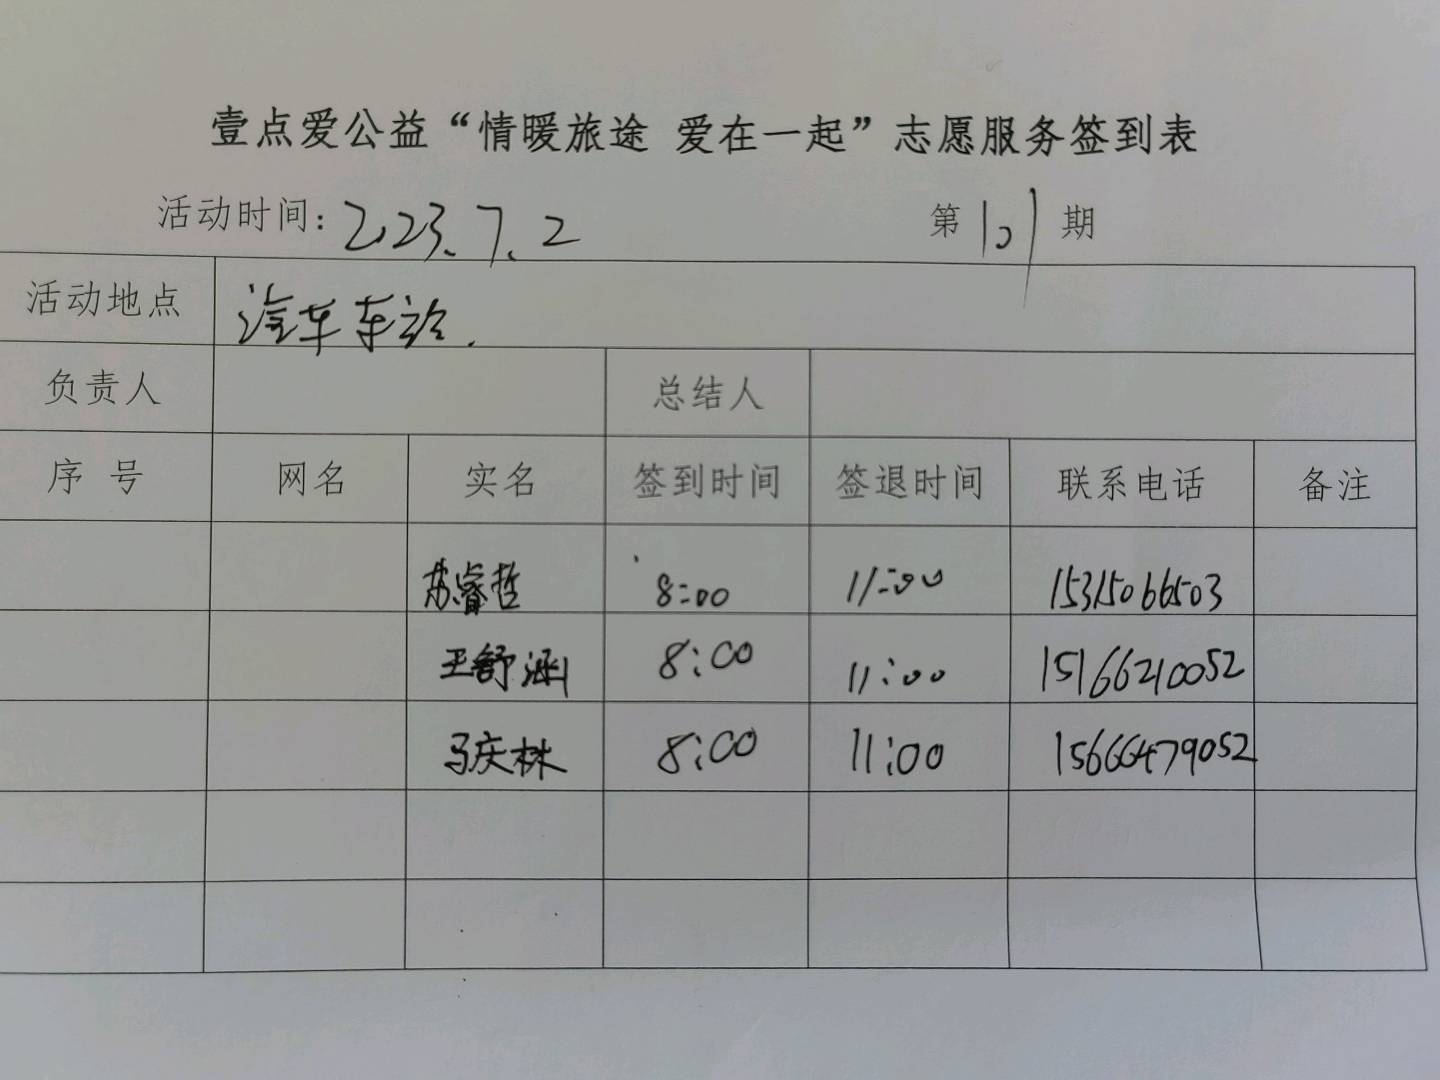 壹点爱公益“情暖旅途 爱在一起”志愿服务签到表
活动时间：2023.7.2 第101期
活动地点 汽车车站.
负责人 总结人
序号 网名 实名 签到时间 签退时间 联系电话 备注
苏睿哲 8:00 11:00 15315066503
王舒涵 8:00 11:00 15166210052
马庆林 8:00 11:00 15666479052